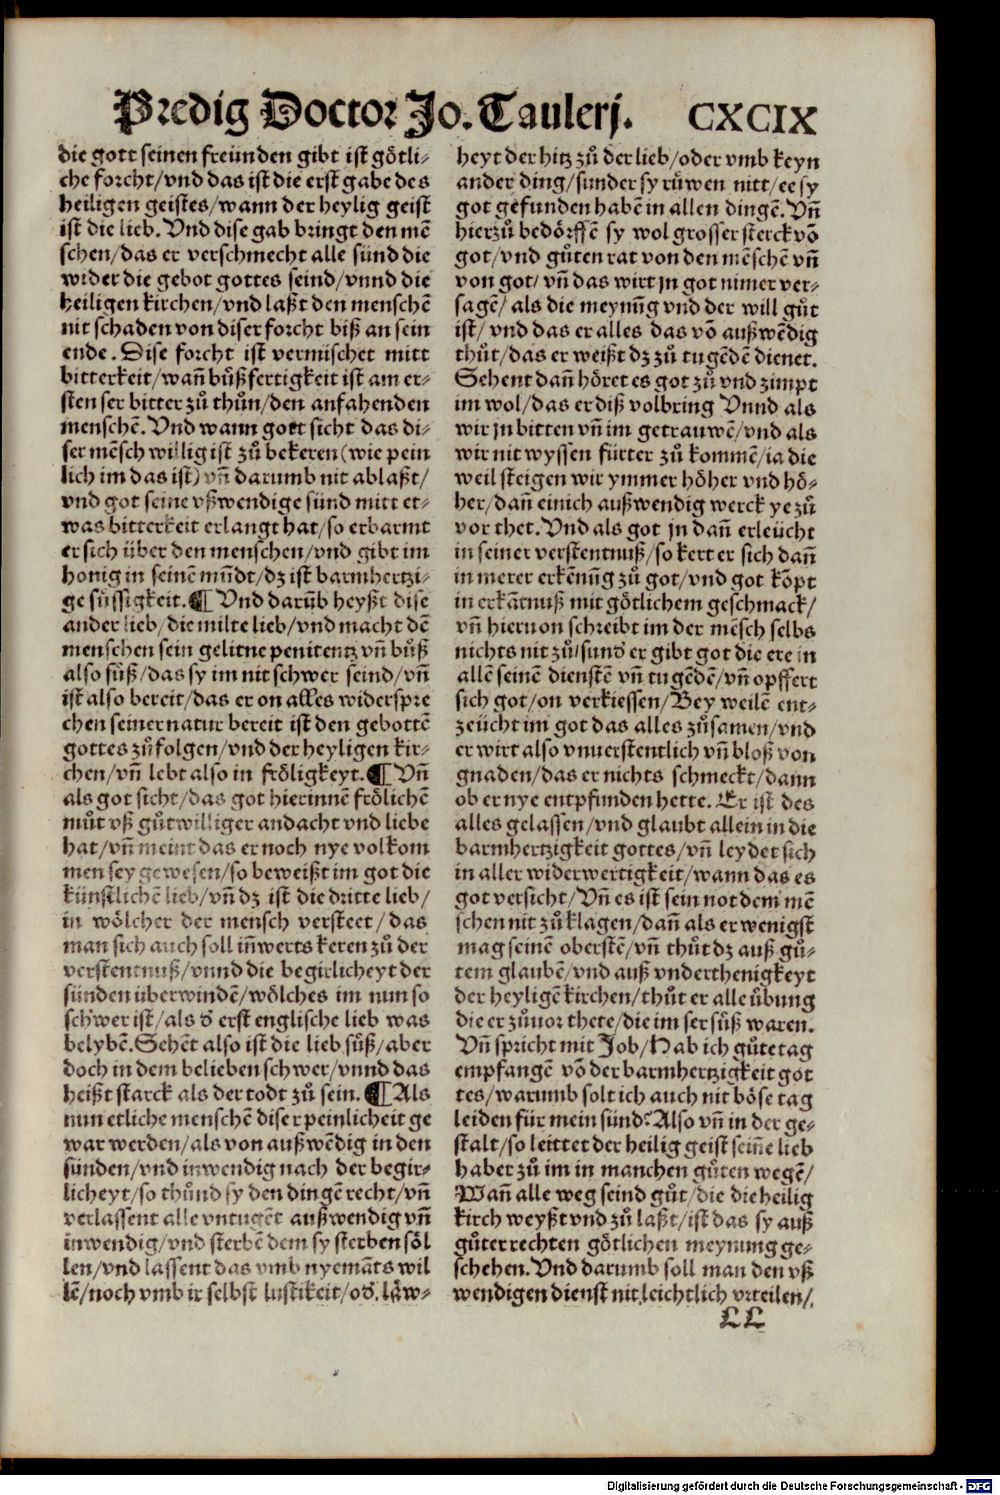 Predig Doctor Jo. Taulerj. CXCIX
die gott seinen freünden gibt ist götli⸗
che forcht/vnd das ist die erst gabe des
heiligen geistes/wann der heylig geist
ist die lieb. Vnd dise gab bringt den mē
schen/das er verschmecht alle sünd die
wider die gebot gottes seind/vnnd die
heiligen kirchen/vnd laßt den menschē
nit schaden von diser forcht biß an sein
ende. Dise forcht ist vermischet mitt
bitterkeit/wañ bůßfertigkeit ist am er⸗
sten ser bitter zů thůn/den anfahenden
menschē. Vnd wann gott sicht das di⸗
ser mēsch willig ist zů bekeren(wie pein
lich im das ist)vñ darumb nit ablaßt/
vnd got seine vßwendige sünd mitt et⸗
was bitterkeit erlangt hat/so erbarmt
er sich über den menschen/vnd gibt im
honig in seinē mūdt/dz ist barmhertzi⸗
ge süssigkeit.¶ Vnd darūb heyßt dise
ander lieb/die milte lieb/vnd macht dē
menschen sein gelitne penitentz vñ bůß
also süß/das sy im nit schwer seind/vñ
ist also bereit/das er on alles widerspre
chen seiner natur bereit ist den gebottē
gottes zů folgen/vnd der heyligen kir⸗
chen/vñ lebt also in fröligkeyt.¶ Vñ
als got sicht/das got hierinnē frölichē
můt vß gůtwilliger andacht vnd liebe
hat/vñ meint das er noch nye volkom
men sey gewesen/so beweißt im got die
künstlichē lieb/vñ dz ist die dritte lieb/
in wölcher der mensch versteet/das
man sich auch soll iñwerts keren zů der
verstentnuß/vnnd die begirlicheyt der
sünden überwindē/wölches im nun so
schwer ist/als d̄ erst englische lieb was
belybē. Sehēt also ist die lieb süß/aber
doch in dem belieben schwer/vnnd das
heißt starck als der todt zů sein.¶ Als
nun etliche menschē diser peinlicheit ge
war werden/als von außwēdig in den
sünden/vnd inwendig nach der begir⸗
licheyt/so thůnd sy den dingē recht/vñ
verlassent alle vntugēt außwendig vñ
inwendig/vnd sterbē dem sy sterben söl
len/vnd lassent das vmb nyemāts wil
lē/noch vmb ir selbst lustikeit/od̄. läw⸗
heyt der hitz zů der lieb/oder vmb keyn
ander ding/sunder sy růwen nitt/ee sy
got gefunden habē in allen dingē. Vñ
hierzů bedörffē sy wol grosser sterck vō
got/vnd gůten rat von den mēschē vñ
von got/vñ das wirt jn got nimer ver⸗
sagē/als die meynūg vnd der will gůt
ist/vnd das er alles das vō außwēdig
thůt/das er weißt dz zů tugēdē dienet.
Sehent dañ höret es got zů vnd zimpt
im wol/das er diß volbring Vnnd als
wir jn bitten vñ im getrauwē/vnd als
wir nit wyssen fürter zů kommē/ia die
weil steigen wir ymmer höher vnd hö⸗
her/dañ einich außwendig werck ye zů
vor thet. Vnd als got jn dañ erleücht
in seiner verstentnuß/so kert er sich dañ
in merer erkēnūg zů got/vnd got köpt
in erkātnuß mit götlichem geschmack/
vñ hieruon schreibt im der mēsch selbs
nichts nit zů/sund̄ er gibt got die ere in
allē seinē dienstē vñ tugēdē/vñ opffert
sich got/on verkiessen/Bey weilē ent⸗
zeücht im got das alles zůsamen/vnd
er wirt also vnuerstentlich vñ bloß von
gnaden/das er nichts schmeckt/dann
ob er nye entpfunden hette. Er ist des
alles gelassen/vnd glaubt allein in die
barmhertzigkeit gottes/vñ leydet sich
in aller widerwertigkeit/wann das es
got versicht/Vñ es ist sein not dem mē
schen nit zů klagen/dañ als er wenigst
mag seinē oberstē/vñ thůt dz auß gů⸗
tem glaubē/vnd auß vnderthenigkeyt
der heyligē kirchen/thůt er alle übung
die er zůuor thete/die im ser süß waren.
Vñ spricht mit Job/Hab ich gůte tag
empfangē vō der barmhertzigkeit got
tes/warumb solt ich auch nit böse tag
leiden für mein sünd? Also vñ in der ge⸗
stalt/so leittet der heilig geist seiñe lieb
haber zů im in manchen gůten wegē/
Wañ alle weg seind gůt/die die heilig
kirch weyßt vnd zů laßt/ist das sy auß
gůter rechten götlichen meynung ge⸗
schehen. Vnd darumb soll man den vß
wendigen dienst nit leichtlich vrteilen/
LL
Digitalisierung gefördert durch die Deutsche Forschungsgemeinschaft - DFG